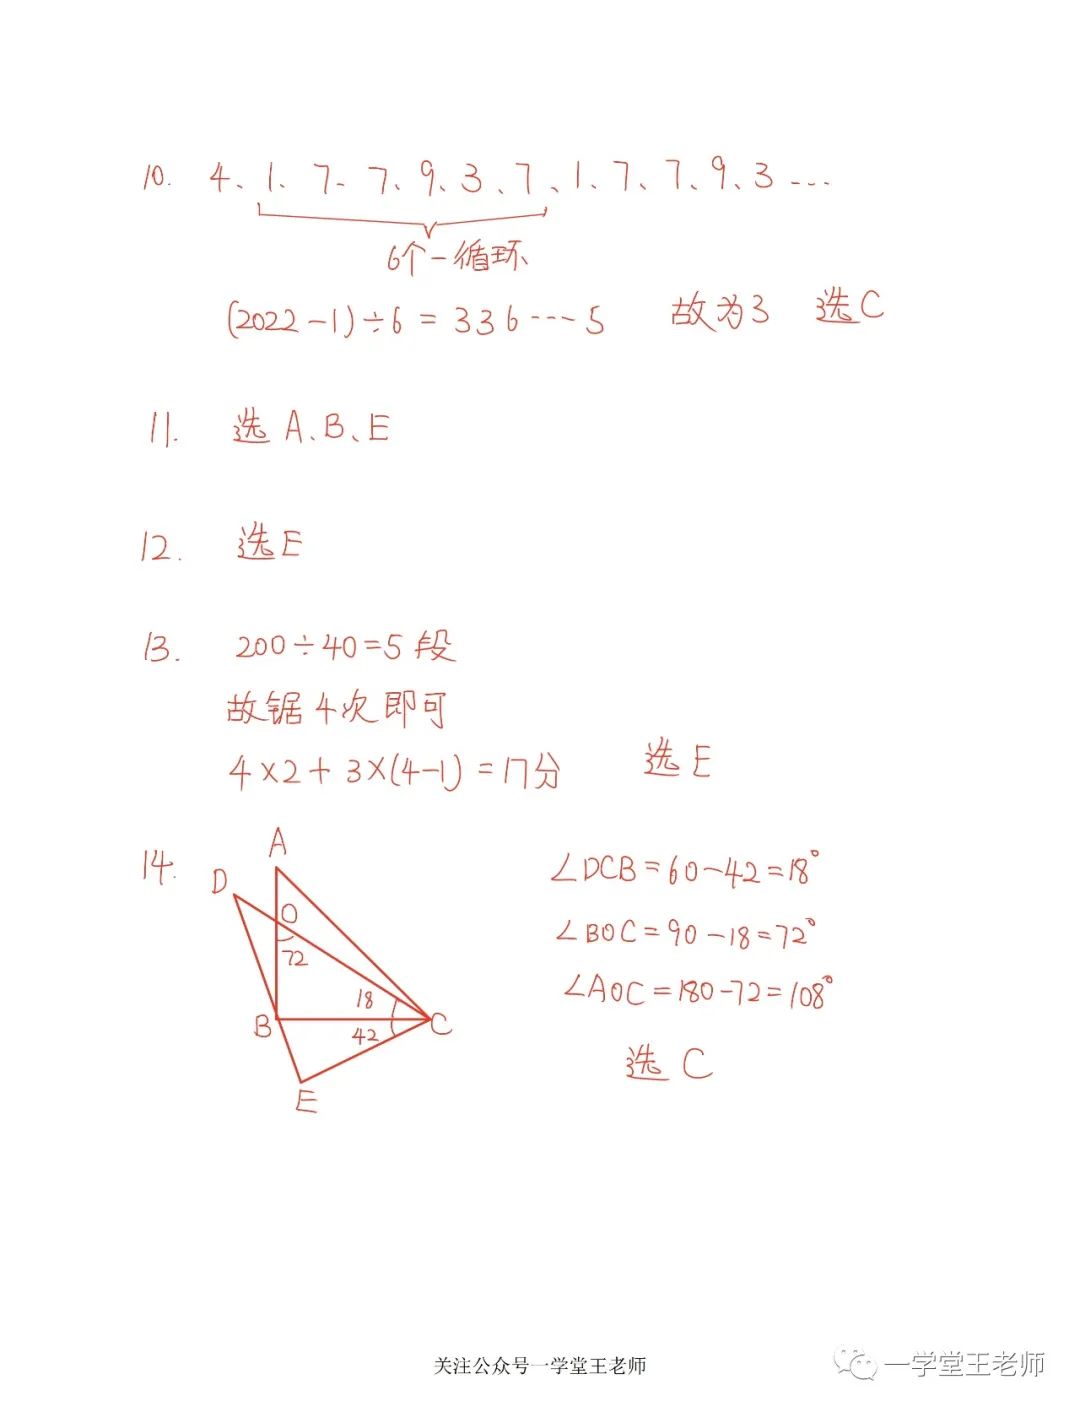 10. 4、1、7、7、9、3、7、1、7、7、9、3 ...
6个一循环
(2022-1)÷6=336……5 故为3 选C
11. 选A、B、E
12. 选E
13. 200÷40=5段
故锯4次即可
4×2+3×(4-1)=17分 选E
14. A
D
O
72
18
B
C
42
E
∠DCB=60-42=18°
∠BOC=90-18=72°
∠AOC=180-72=108°
选 C
关注公众号一学堂王老师
一学堂王老师